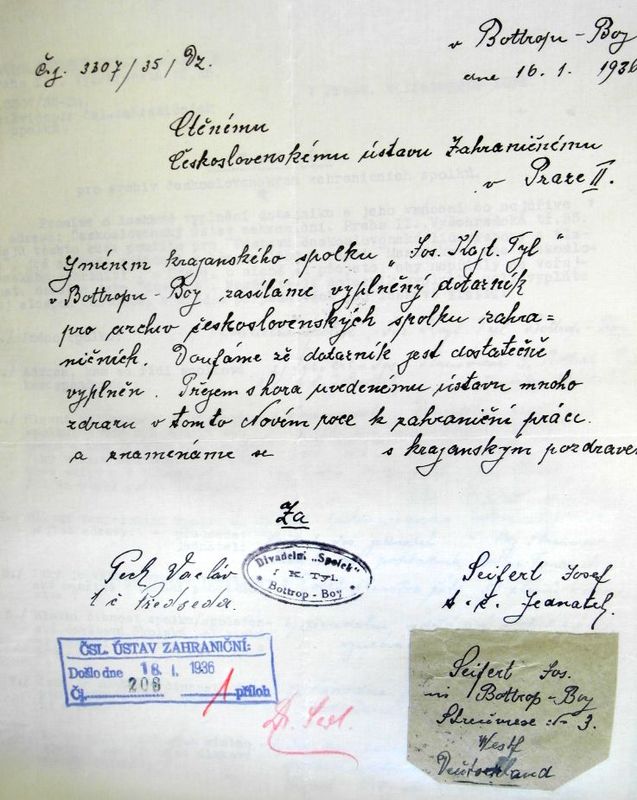 v Bottropu-Boy
Č.j. 3307/35/Dz.
dne 16.1. 1936
Ctěnému
Československému ústavu Zahraničnému
v Praze II.
Jménem krajanského spolku „Jos. Kajt. Tyl"
v Bottropu-Boy zasíláme vyplněný dotazník
pro archiv československých spolku zahra=
ničních. Doufáme zě dotazník jest dostatečně
vyplněn. Přejem shora uvedenému ústavu mnoho
zdraru v tomto Novém roce k zahraniční práci.
a znamenáme se s krajanským pozdravem
Za
Pech Vaclav
Seifert Josef
t.č. Předseda.
t.č. Jednatel.
Divadelní „Spolek"
J. K. Tyl.
Bottrop-Boy
ČSL. ÚSTAV ZAHRANIČNÍ:
Došlo dne 18. I. 1936
Čj. 208 1 příloh
Seifert Jos.
in Bottrop-Boy
No 3.
Westf
Deutschland